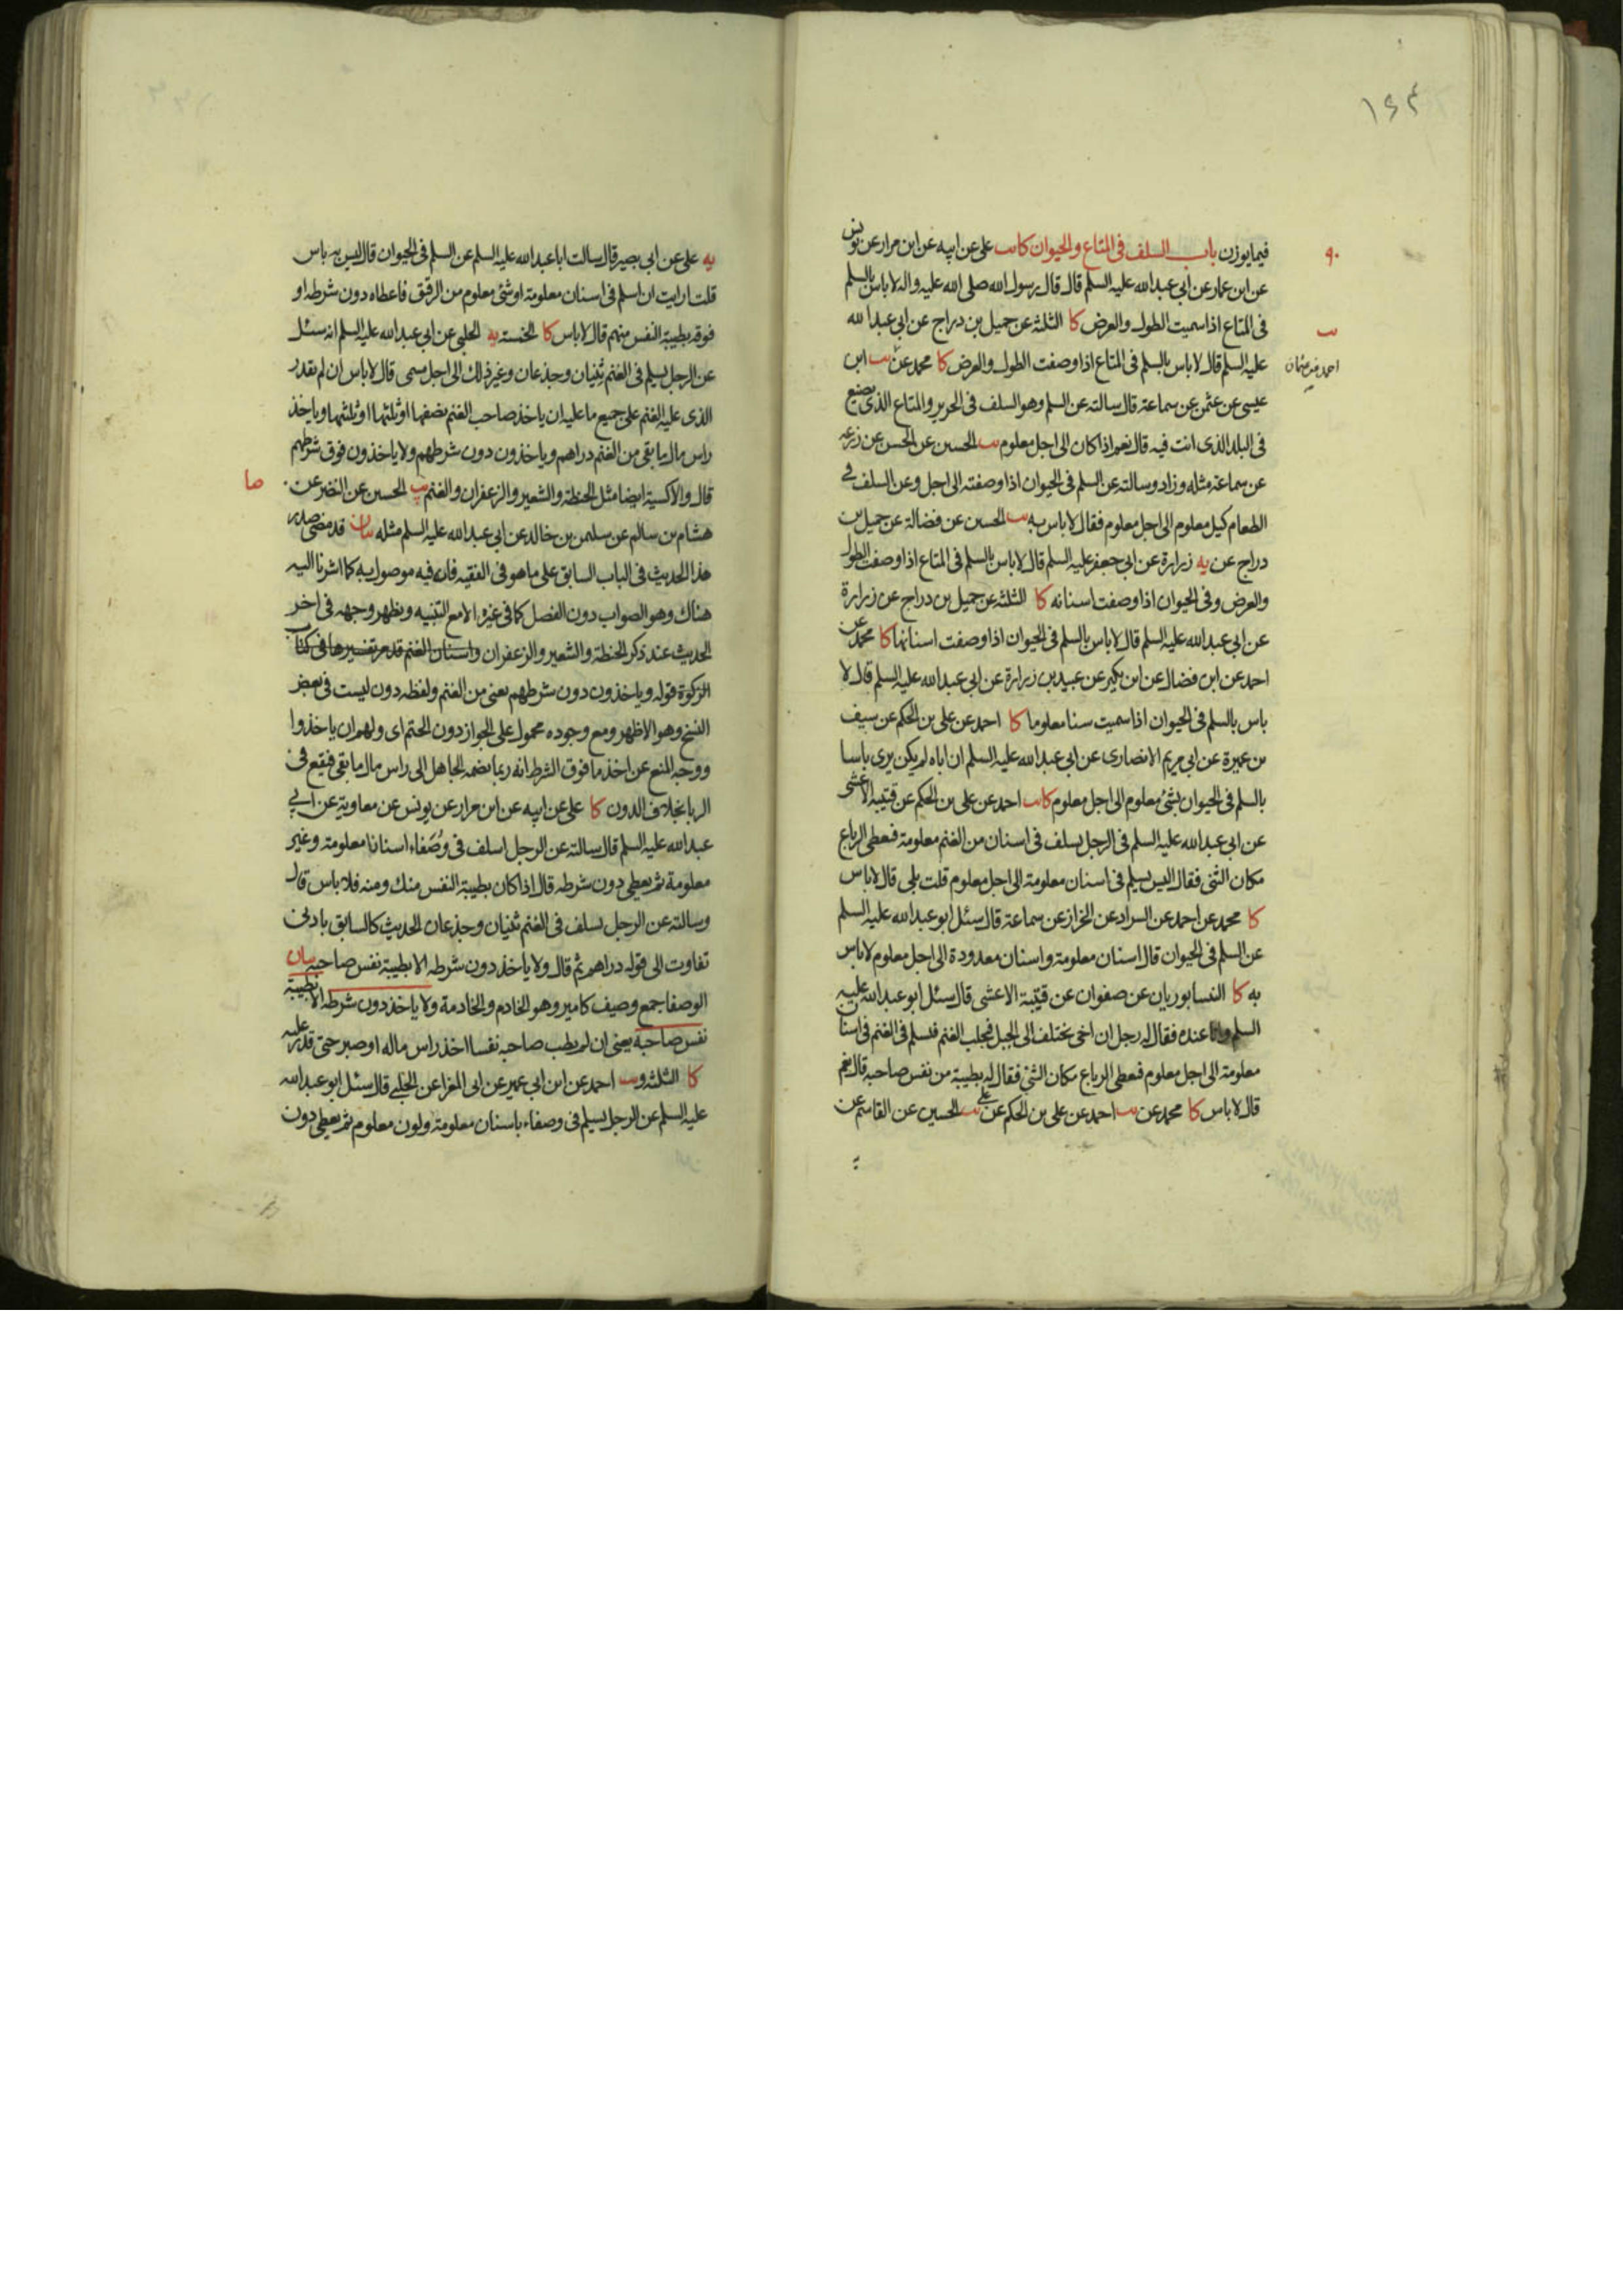 ١٤٣
٩٠
فيما يوزن باب السلف في المتاع والحيوان كا يب علي عن ابيه عن ابن مرار عن يونس
عن ابن عمار عن ابي عبدالله عليه السلم قال قال رسول الله صلى الله عليه واله لا باس بالسلم
في المتاع اذا سميت الطول والعرض كا الثلثة عن جميل بن دراج عن ابي عبدالله
يب
عليه السلم قال لا باس بالسلم في المتاع اذا وصفت الطول والعرض كا محمد عن يب ابن
عيسى عن عثمن عن سماعة قال سالته عن السلم وهو السلف في الحرير والمتاع الذي يصنع
في البلد الذي انت فيه قال نعم اذا كان الى اجل معلوم يب الحسين عن الحسن عن زرعه
عن سماعة مثله وزاد وسالته عن السلم في الحيوان اذا وصفته الى اجل وعن السلف في
الطعام كيل معلوم الى اجل معلوم فقال لا باس به يب الحسين عن فضالة عن جميل بن
دراج عن يه زرارة عن ابي جعفر عليه السلم قال لا باس بالسلم في المتاع اذا وصفت الطول
والعرض وفي الحيوان اذا وصفت اسنانه كا الثلثة عن جميل بن دراج عن زرارة
عن ابي عبدالله عليه السلم قال لا باس بالسلم في الحيوان اذا وصفت اسنانها كا محمد عن
احمد عن ابن فضال عن ابن بكير عن عبيد بن زرارة عن ابي عبدالله عليه السلم قال لا
باس بالسلم في الحيوان اذا سميت سنا معلوما كا احمد عن علي بن الحكم عن سيف
بن عميرة عن ابي مريم الانصاري عن ابي عبدالله عليه السلم ان اباه لم يكن يرى باسا
بالسلم في الحيوان بشئ معلوم الى اجل معلوم كا يب احمد عن علي بن الحكم عن قتيبه الاعشى
عن ابي عبدالله عليه السلم في الرجل يسلف في اسنان من الغنم معلومة فيعطى الرباع
مكان الثني فقال اليس يسلم في اسنان معلومة الى اجل معلوم قلت بلى قال لا باس
كا محمد عن احمد عن السراد عن الخراز عن سماعة قال سئل ابو عبدالله عليه السلم
عن السلم في الحيوان قال اسنان معلومة واسنان معدودة الى اجل معلوم لا باس
به كا النيسابوريان عن صفوان عن قتيبة الاعشى قال سئل ابو عبدالله عليه
السلم وانا عنده فقال له رجل ان اخي يختلف الى الجبل فيجلب الغنم فيسلم في الغنم في اسنان
معلومة الى اجل معلوم فيعطى الرباع مكان الثني فقال له بطيبة من نفس صاحبه قال نعم
قال لا باس كا محمد عن يب احمد عن علي بن الحكم عن علي يب الحسين عن القاسم عن
يه علي عن ابي بصير قال سالت ابا عبدالله عليه السلم عن السلم في الحيوان قال ليس به باس
قلت ارايت ان اسلم في اسنان معلومة او شئ معلوم من الرقيق فاعطاه دون شرطه او
فوقه بطيبة النفس منهم قال لا باس كا الخمسة يه الحلبي عن ابي عبدالله عليه السلم انه سئل
عن الرجل يسلم في الغنم ثنيان وجذعان وغير ذلك الى اجل مسمى قال لا باس ان لم يقدر
الذي عليه الغنم على جميع ما عليه ان ياخذ صاحب الغنم نصفها او ثلثها او ثلثيها وياخذ
راس مال ما بقي من الغنم دراهم وياخذون دون شرطهم ولا ياخذون فوق شرطهم
قال والاكسية ايضا مثل الحنطة والشعير والزعفران والغنم يب الحسين عن النضر عن
صا
هشام بن سالم عن سليمن بن خالد عن ابي عبدالله عليه السلم مثله بيان قد مضى صدر
هذا الحديث في الباب السابق على ما هو في الفقيه فان فيه موصول به كما اشرنا اليه
هناك وهو الصواب دون الفصل كما في غيره الا مع التنبيه ويظهر وجهه في اخر
الحديث عند ذكر الحنطة والشعير والزعفران واسنان الغنم قد مر تفسيرها في كتاب
الزكوة قوله وياخذون دون شرطهم يعني من الغنم ولفظه دون ليست في بعض
النسخ وهو الاظهر ومع وجوده محمول على الجواز دون الحتم اي ولهم ان ياخذوا
ووجه المنع عن اخذ ما فوق الشرط انه ربما يضمه الجاهل الى راس مال ما بقي فيقع في
الربا بخلاف الدون كا علي عن ابيه عن ابن مرار عن يونس عن معاوية عن ابي
عبدالله عليه السلم قال سالته عن الرجل اسلف في وصفاء اسنانا معلومة وغير
معلومة ثم يعطي دون شرطه قال اذا كان بطيبة النفس منك ومنه فلا باس قال
وسالته عن الرجل يسلف في الغنم ثنيان وجذعان الحديث كالسابق بادنى
تفاوت الى قوله دراهم ثم قال ولا ياخذ دون شرطه الا بطيبة نفس صاحبه بيان
الوصفا جمع وصيف كامير وهو الخادم والخادمة ولا ياخذ دون شرطه الا بطيبة
نفس صاحبه يعني ان لم يطب صاحبه نفسا اخذ راس ماله او صبر حتى قدر عليه
كا الثلثة ويب احمد عن ابن ابي عمير عن ابي المغرا عن الحلبي قال سئل ابو عبدالله
عليه السلم عن الرجل يسلم في وصفاء باسنان معلومة ولون معلوم ثم يعطي دون